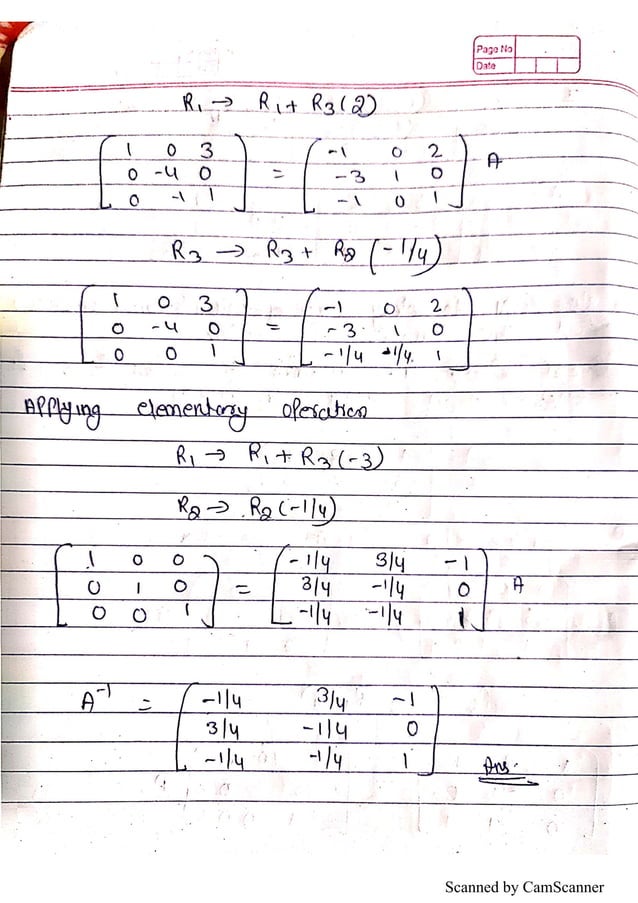 Page No
Date
R₁ → R₁ + R₃(2)
[1 0 3] [-1 0 2]
[0 -4 0] = [-3 1 0] A
[0 -1 1] [-1 0 1]
R₃ → R₃ + R₂ (-1/4)
[1 0 3] [-1 0 2]
[0 -4 0] = [-3 1 0]
[0 0 1] [-1/4 -1/4 1]
Applying elementary operation
R₁ → R₁ + R₃(-3)
R₂ → R₂(-1/4)
[1 0 0] [-1/4 3/4 -1]
[0 1 0] = [3/4 -1/4 0] A
[0 0 1] [-1/4 -1/4 1]
[-1/4 3/4 -1]
A⁻¹ = [3/4 -1/4 0]
[-1/4 -1/4 1]
Ans.
Scanned by CamScanner